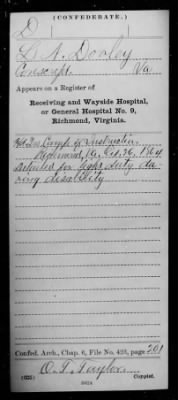 (CONFEDERATE.)
D
L. N. Dooley
Conscript. Va
Appears on a Register of
Receiving and Wayside Hospital,
or General Hospital No. 9,
Richmond, Virginia.
Hd Qrs Camp of Instruction
Richmond, Va. Oct. 26, 1864
Detailed for light duty du-
ring disability
Confed. Arch., Chap. 6, File No. 423, page 201
O. T. Taylor
(635) Copyist.